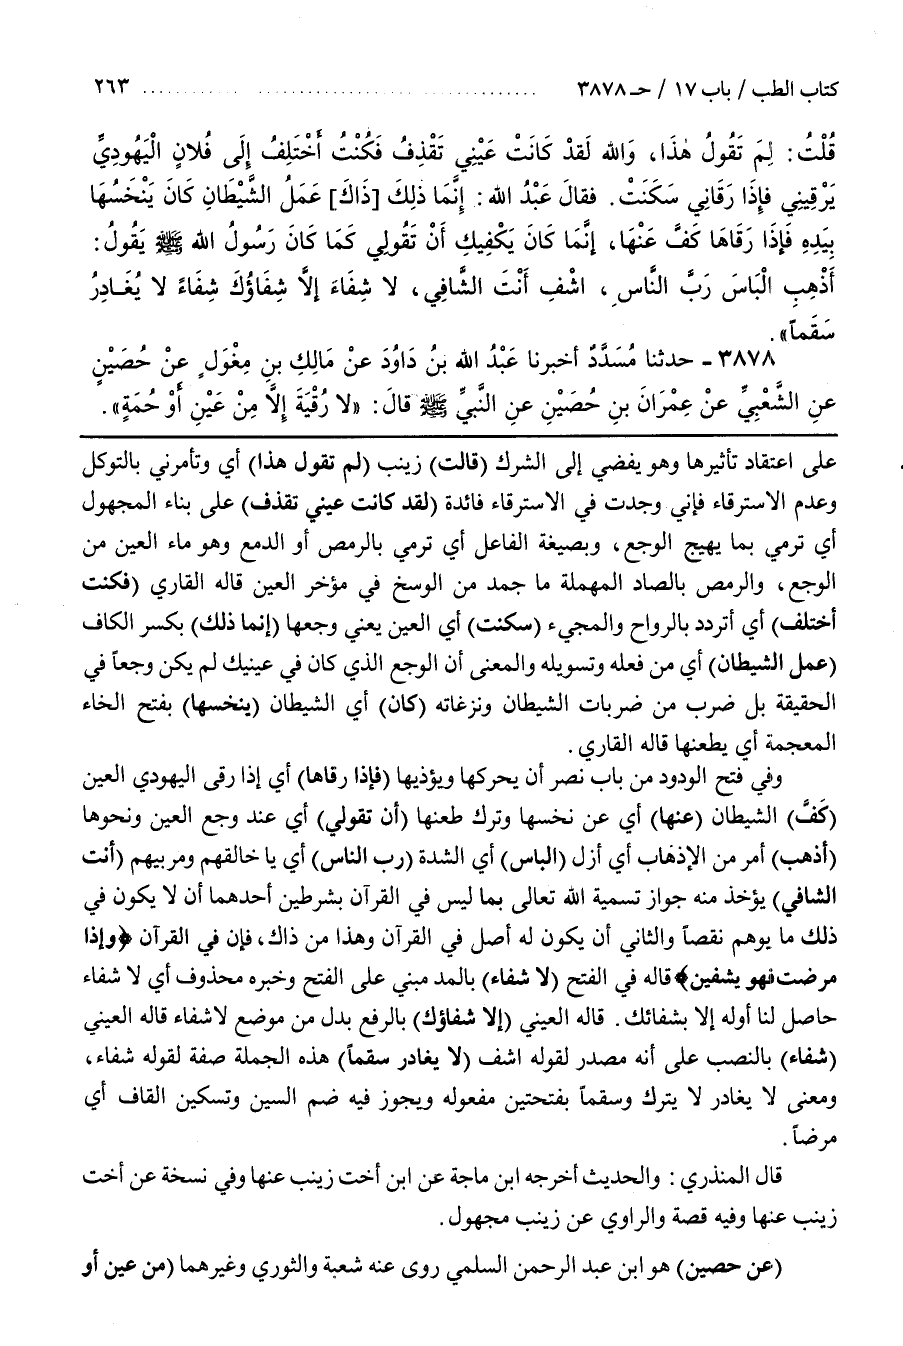 كتاب الطب / باب ١٧ / حـ ٣٨٧٨ ........................................ ٢٦٣
قُلْتُ: لِمَ تَقُولُ هٰذَا، وَالله لَقَدْ كَانَتْ عَيْنِي تَقْذِفُ فَكُنْتُ أَخْتَلِفُ إِلَى فُلانٍ الْيَهُودِيِّ
يَرْقِينِي فإِذَا رَقَانِي سَكَنَتْ. فقالَ عَبْدُ الله: إِنَّمَا ذٰلِكَ [ذَاكَ] عَمَلُ الشَّيْطَانِ كَانَ يَنْخَسُهَا
بِيَدِهِ فَإِذَا رَقَاهَا كَفَّ عَنْهَا، إِنَّمَا كَانَ يَكْفِيكِ أَنْ تَقُولِي كَمَا كَانَ رَسُولُ الله ﷺ يَقُولُ:
أَذْهِبِ الْبَاسَ رَبَّ النَّاسِ، اشْفِ أَنْتَ الشَّافِي، لا شِفَاءَ إِلاَّ شِفَاؤُكَ شِفَاءً لا يُغَـادِرُ
سَقَماً».
٣٨٧٨ ـ حدثنا مُسَدَّدٌ أخبرنا عَبْدُ الله بنُ دَاوُدَ عنْ مَالِكِ بنِ مِغْوَلٍ عنْ حُصَيْنٍ
عنِ الشَّعْبِيِّ عنْ عِمْرَانَ بنِ حُصَيْنٍ عنِ النَّبِيِّ ﷺ قالَ: «لا رُقْيَةَ إِلاَّ مِنْ عَيْنٍ أَوْ حُمَةٍ».
على اعتقاد تأثيرها وهو يفضي إلى الشرك (قالت) زينب (لم تقول هذا) أي وتأمرني بالتوكل
وعدم الاسترقاء فإني وجدت في الاسترقاء فائدة (لقد كانت عيني تقذف) على بناء المجهول
أي ترمي بما يهيج الوجع، وبصيغة الفاعل أي ترمي بالرمص أو الدمع وهو ماء العين من
الوجع، والرمص بالصاد المهملة ما جمد من الوسخ في مؤخر العين قاله القاري (فكنت
أختلف) أي أتردد بالرواح والمجيء (سكنت) أي العين يعني وجعها (إنما ذلك) بكسر الكاف
(عمل الشيطان) أي من فعله وتسويله والمعنى أن الوجع الذي كان في عينيك لم يكن وجعاً في
الحقيقة بل ضرب من ضربات الشيطان ونزغاته (كان) أي الشيطان (ينخسها) بفتح الخاء
المعجمة أي يطعنها قاله القاري.
وفي فتح الودود من باب نصر أن يحركها ويؤذيها (فإذا رقاها) أي إذا رقى اليهودي العين
(كَفَّ) الشيطان (عنها) أي عن نخسها وترك طعنها (أن تقولي) أي عند وجع العين ونحوها
(أذهب) أمر من الإذهاب أي أزل (الباس) أي الشدة (رب الناس) أي يا خالقهم ومربيهم (أنت
الشافي) يؤخذ منه جواز تسمية الله تعالى بما ليس في القرآن بشرطين أحدهما أن لا يكون في
ذلك ما يوهم نقصاً والثاني أن يكون له أصل في القرآن وهذا من ذاك، فإن في القرآن ﴿وإذا
مرضت فهو يشفين﴾ قاله في الفتح (لا شفاء) بالمد مبني على الفتح وخبره محذوف أي لا شفاء
حاصل لنا أوله إلا بشفائك. قاله العيني (إلا شفاؤك) بالرفع بدل من موضع لاشفاء قاله العيني
(شفاء) بالنصب على أنه مصدر لقوله اشف (لا يغادر سقماً) هذه الجملة صفة لقوله شفاء،
ومعنى لا يغادر لا يترك وسقماً بفتحتين مفعوله ويجوز فيه ضم السين وتسكين القاف أي
مرضاً.
قال المنذري: والحديث أخرجه ابن ماجة عن ابن أخت زينب عنها وفي نسخة عن أخت
زينب عنها وفيه قصة والراوي عن زينب مجهول.
(عن حصين) هو ابن عبد الرحمن السلمي روى عنه شعبة والثوري وغيرهما (من عين أو